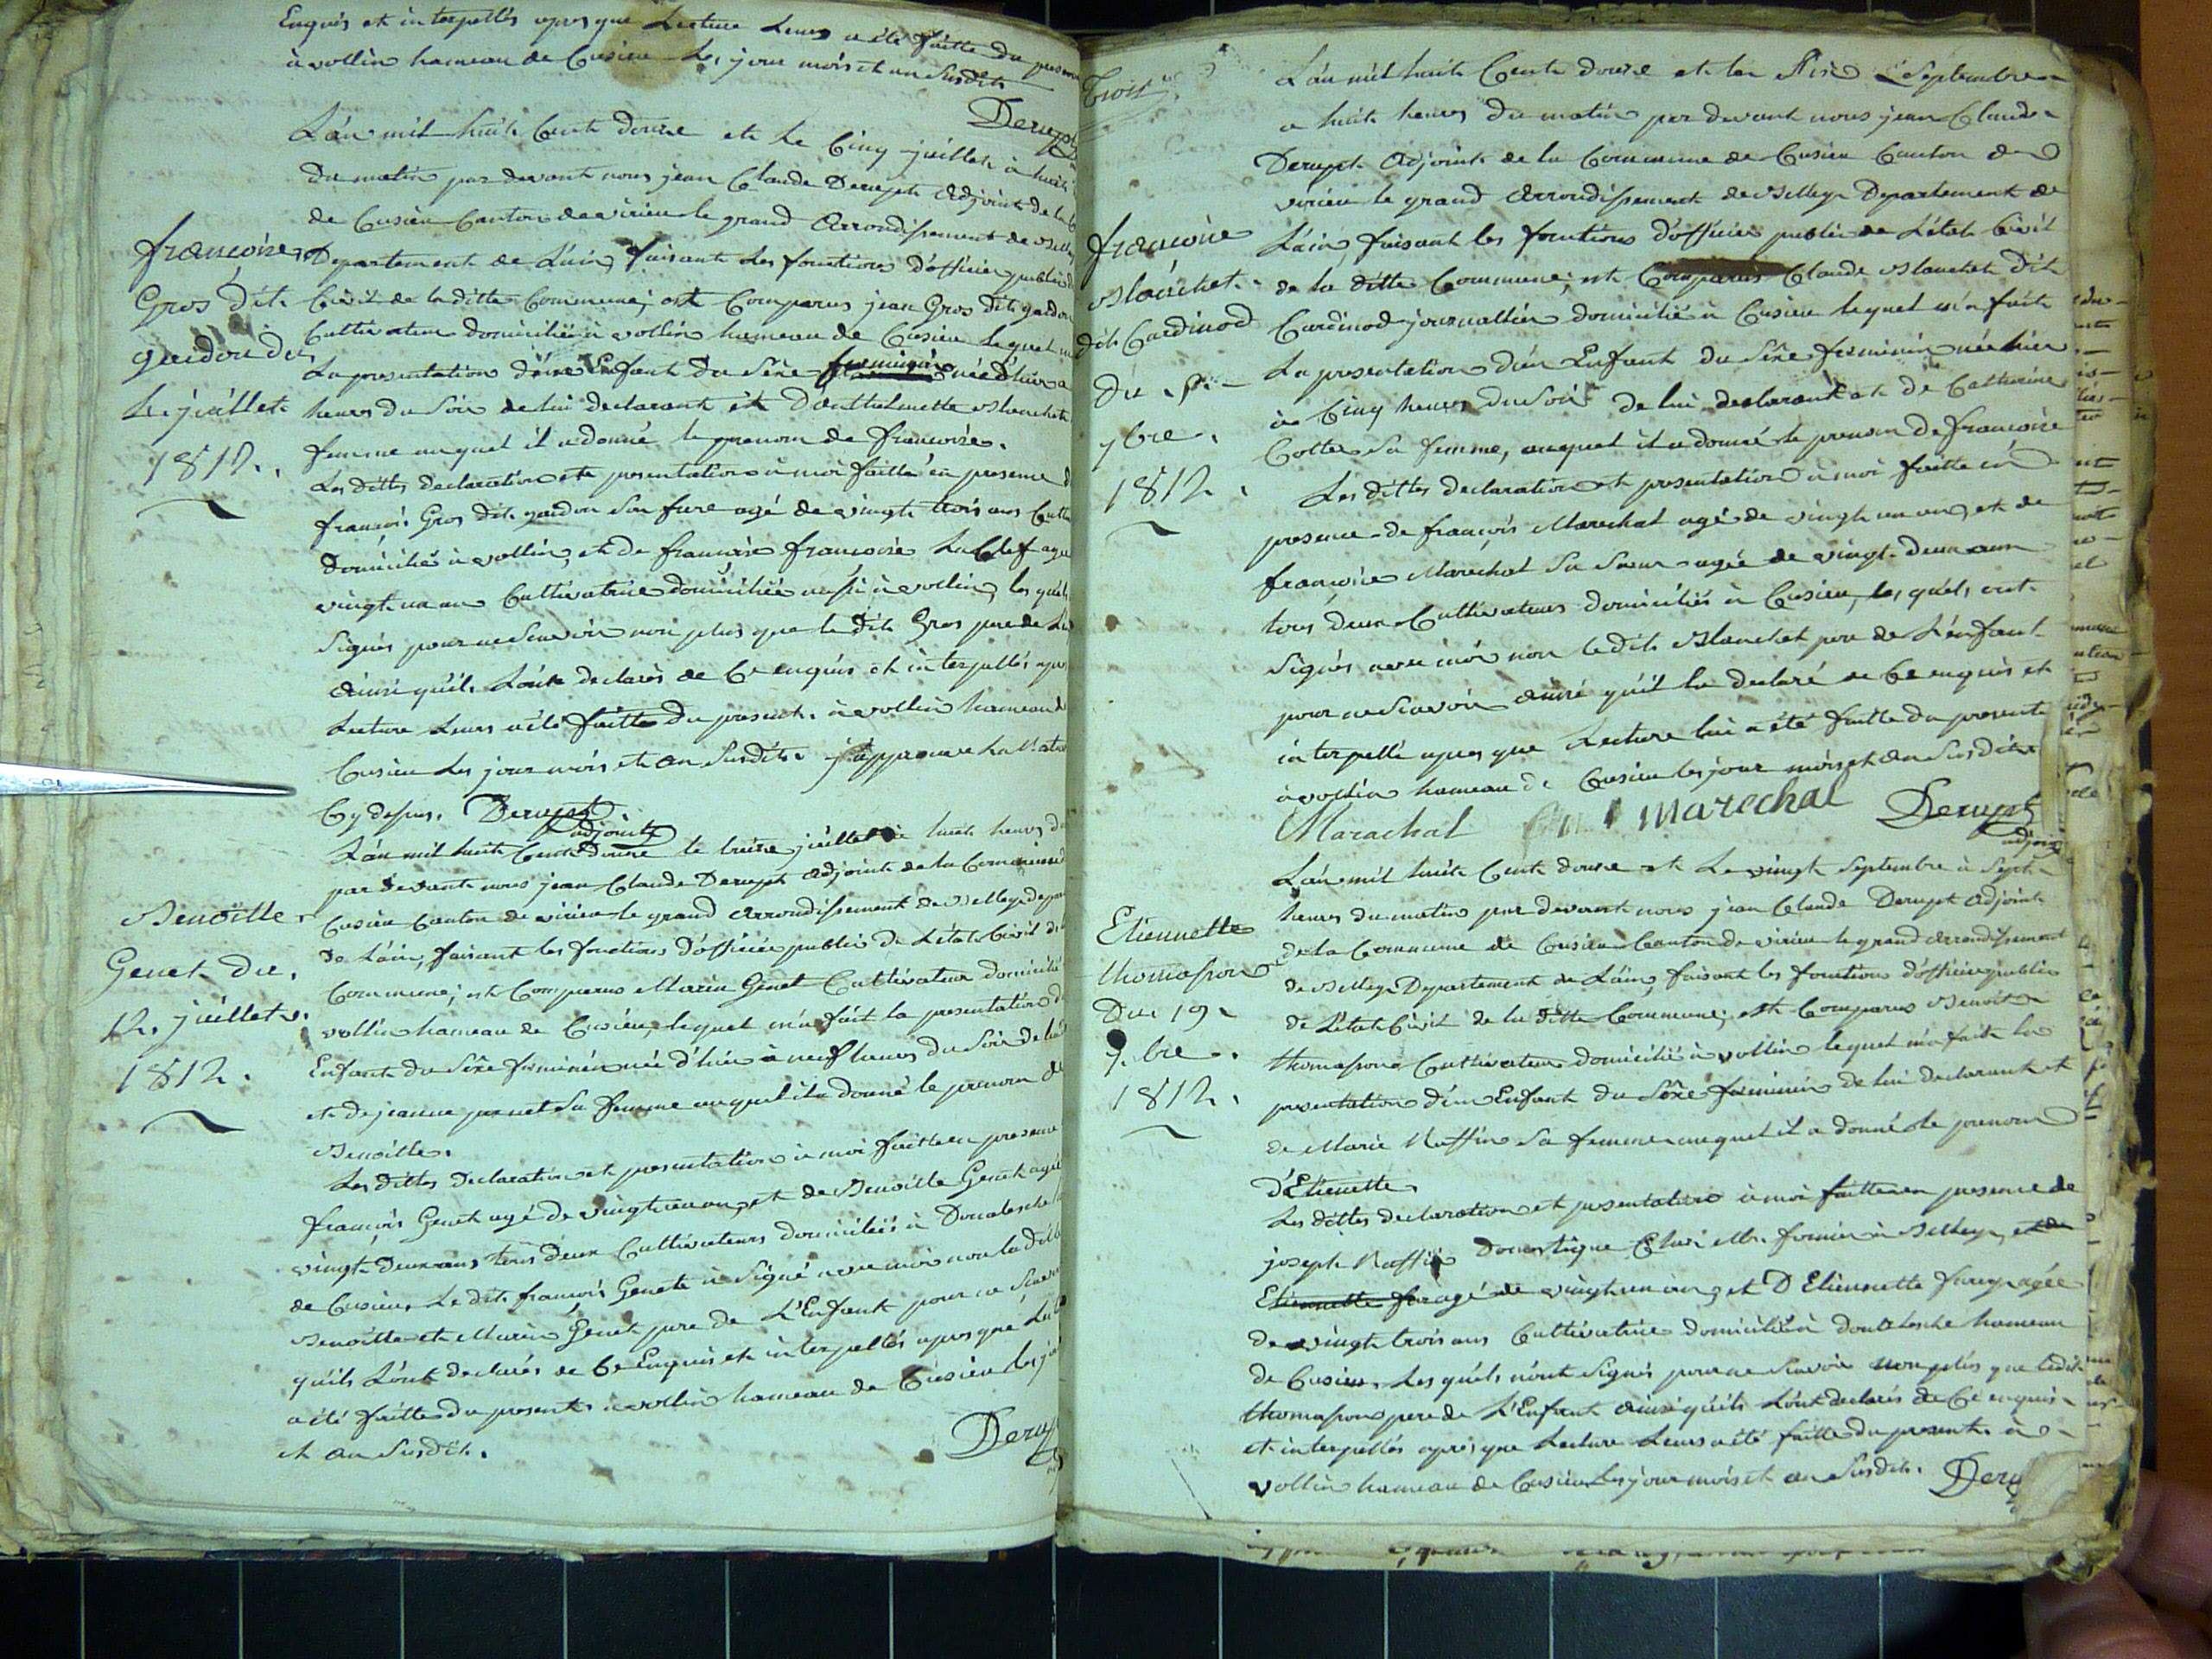 Enquis et interpellés apres que Lecture Leurs a été faitte du present
à vollin hameau de Cusieu Les jour mois et an Susdits
Derupt
L'an mil huit Cent douze et Le Cinq juillet à huit
Du matin par devant nous jean Claude Derupt adjoint de la
de Cusieu Canton de virieu le grand arrondissement de Belley
Departement de L'ain, faisant Les fonctions d'officier public de
Civil de la ditte Commune; est Comparus jean Gros dit gaidon
Cultivateur domicilié à vollin hameau de Cusieu lequel
La presentation d'un Enfant du Sexe feminin née d'hier a
heures du Soir de lui declarant et D'anthelmette Blanchet
femme auquel il a donné le prenom de francoise.
Les dittes declaration et presentation à moi faitte en presence
francois Gros dit gaidon Son frere agé de vingt trois ans
Domicilié à vollin, et de francoise francoise La Clef agée
vingt un an Cultivatrice domiciliée aussi à vollin, les quels
Signés pour ne Scavoir non plus que le dit Gros pere de
ainsi qu'ils L'ont declarés de Ce enquis et interpellés apres
Lecture Leurs a été faitte du present. à vollin hameau de
Cusieu Les jour mois et an Susdits. j'approuve La
Cy dessus. Derupt
adjoint
francoise
Gros dit
gaidon du
4. juillet
1812.
L'an mil huit Cent Douze le treize juillet à huit heures du
par devant nous jean Claude Derupt adjoint de la Commune
Cusieu Canton de virieu le grand arrondissement de Belley
de L'ain, faisant les fonctions d'officier public de L'état Civil de
Commune; est Comparus Marin Genet Cultivateur domicilié
vollin hameau de Cusieu, lequel m'a fait la presentation
Enfant du Sexe feminin née d'hier à neuf heures du Soir de lui
et de jeanne sa femme auquel il a donné le prenom de
Benoitte.
Les dittes declaration et presentation à moi faitte en presence
francois Genet agé de vingt un an, et de Benoitte Genet agée
vingt deux ans tous deux Cultivateurs domiciliés à
de Cusieu, Le dit francois Genet à Signé avec moi non la ditte
Benoitte et Marin Genet pere de L'Enfant pour ne Scavoir
qu'ils L'ont declarés de Ce Enquis et interpellés apres que
a été faitte du present à vollin hameau de Cusieu les
et an Susdits.
Derupt
Benoitte
Genet du
12. juillet
1812.
Trois
L'an mil huit Cent douze et Septembre
a huit heures Du matin par devant nous jean Claude
Derupt adjoint de la Commune de Cusieu Canton de
virieu le grand arrondissement de Belley Departement de
L'ain, faisant les fonctions d'officier public de L'état Civil
de la ditte Commune; est Comparus Claude Blanchet dit
Cardinod journallier domicilié à Cusieu lequel m'a fait
La presentation d'un Enfant du Sexe feminin née hier
à Cinq heures du Soir de lui declarant et de Catherine
Sa femme, auquel il a donné le prenom de francoise
Les dittes declaration et presentation à moi faitte en
presence de francois Marechal agé de vingt un an, et de
francoise Marechal Sa Sœur agée de vingt-deux ans
tous deux Cultivateurs domiciliés à Cusieu, les quels ont
Signés avec moi non le dit Blanchet pere de L'enfant
pour ne Scavoir ainsi qu'il La declaré de Ce enquis et
interpellé apres que Lecture lui a été faitte du present
à vollin hameau de Cusieu les jour mois et an Susdits
Marachal marechal Derupt
adjoint
francoise
Blanchet
dit Cardinod
Du
7bre.
1812.
L'an mil huit Cent douze et Le vingt Septembre à Sept
heures du matin par devant nous jean Claude Derupt adjoint
de la Commune de Cusieu Canton de virieu le grand arrondissement
de Belley Departement de L'ain, faisant les fonctions d'officier public
de L'état Civil de la ditte Commune; est Comparus Benoit
thomasson Cultivateur domicilié à vollin lequel m'a fait la
presentation d'un Enfant du Sexe feminin de lui declarant et
de Marie Ruffin Sa femme auquel il a donné le prenom
d'Etiennette.
Les dittes declaration et presentation à moi faitte en presence de
joseph Ruffin Domestique Chez Mr. à Belley, et de
Etiennette agé de vingt un an, et D'Etiennette agée
de vingt trois ans Cultivatrice domiciliée à hameau
de Cusieu. Les quels n'ont Signés pour ne Scavoir non plus que ledit
thomasson pere de L'Enfant ainsi qu'ils L'ont declarés de Ce enquis
et interpellés apres que Lecture Leurs a été faitte du present. à
vollin hameau de Cusieu Les jour mois et an Susdits.
Etiennette
thomasson
Du 19
7.bre.
1812.